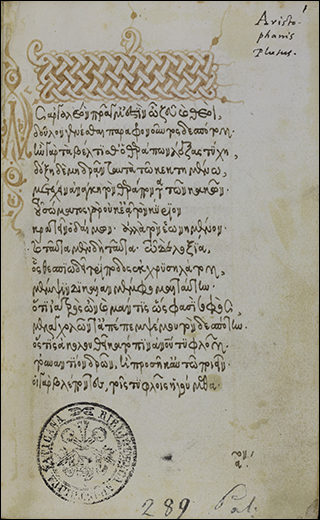 1
Aristo-
phanis
Plutus.
Ὡς ἀργαλέον πρᾶγμ' ἐστὶν ὦ ζεῦ καὶ θεοί,
δοῦλον γενέσθαι παραφρονοῦντος δεσπότου.
ἢν γὰρ τὰ βέλτισθ' ὁ θεράπων λέξας τύχῃ,
δόξῃ δὲ μὴ δρᾶν ταῦτα τῷ κεκτημένῳ,
μετέχειν ἀνάγκη τὸν θεράποντα τῶν κακῶν.
τοῦ σώματος γὰρ οὐκ ἐᾷ τὸν κύριον
κρατεῖν ὁ δαίμων. ἀλλὰ τὸν ἐωνημένον.
καὶ ταῦτα μὲν δὴ ταῦτα. τῷ δὲ λοξίᾳ,
ὃς θεσπιῳδεῖ τρίποδος ἐκ χρυσηλάτου,
μέμψιν δικαίαν μέμφομαι ταύτην.
ὅτι ἰατρὸς ὢν καὶ μάντις ὥς φασι σοφὸς,
μελαγχολῶντ' ἀπέπεμψέ μου τὸν δεσπότην.
ὅστις ἀκολουθεῖ κατόπιν ἀνθρώπου τυφλοῦ.
τοὐναντίον δρῶν, ἢ προσῆκ' αὐτῷ ποιεῖν.
οἱ γὰρ βλέποντες, τοῖς τυφλοῖς ἡγούμεθα.
BIBLIOTHECA VATICANA
289 Pal.